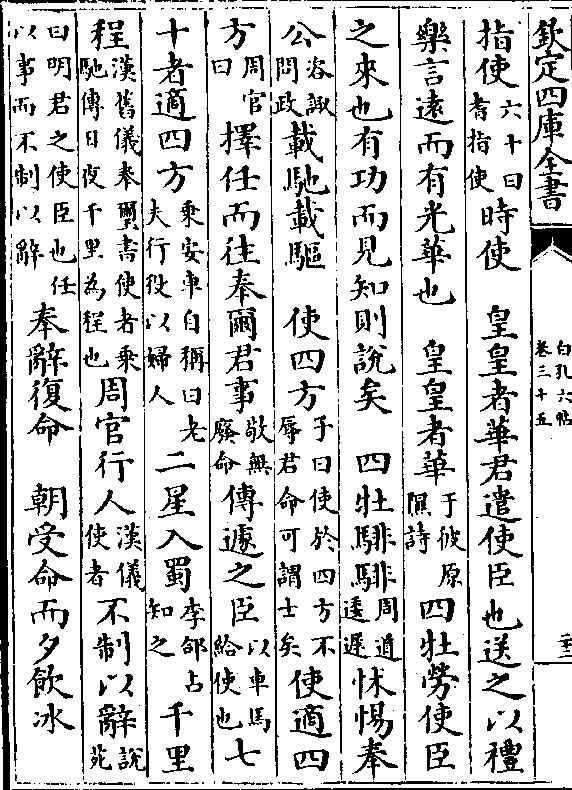 欽定四庫全書
白孔六帖
卷三十五
指使六十曰耆指使時使　皇皇者華君遣使臣也送之以禮
樂言遠而有光華也　皇皇者華于彼原隰詩四牡勞使臣
之來也有功而見知則說矣　四牡騑騑周道逶遲怵惕奉
公咨諏問政載馳載驅　使四方子曰使於四方不辱君命可謂士矣使適四
方周官曰擇任而往奉爾君事敬無廢命傳遽之臣以車馬給使也七
十者適四方乘安車自稱曰老夫行役以婦人二星入蜀李郃占知之千里
程漢舊儀奉璽書使者乘馳傳日夜千里為程也周官行人漢儀使者不制以辭說苑
曰明君之使臣也任以事而不制以辭奉辭復命　朝受命而夕飲冰